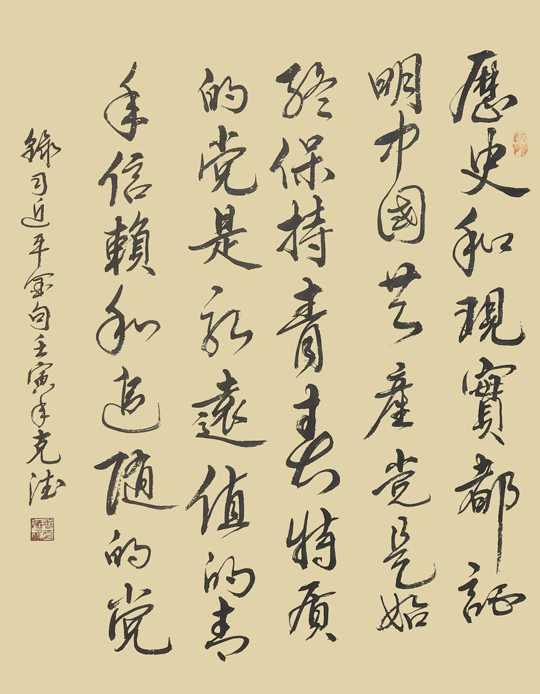 歷史和現實都証
明中國共產党是始
終保持青春特质
的党是永遠值的青
年信賴和追随的党
錄习近平金句壬寅年克